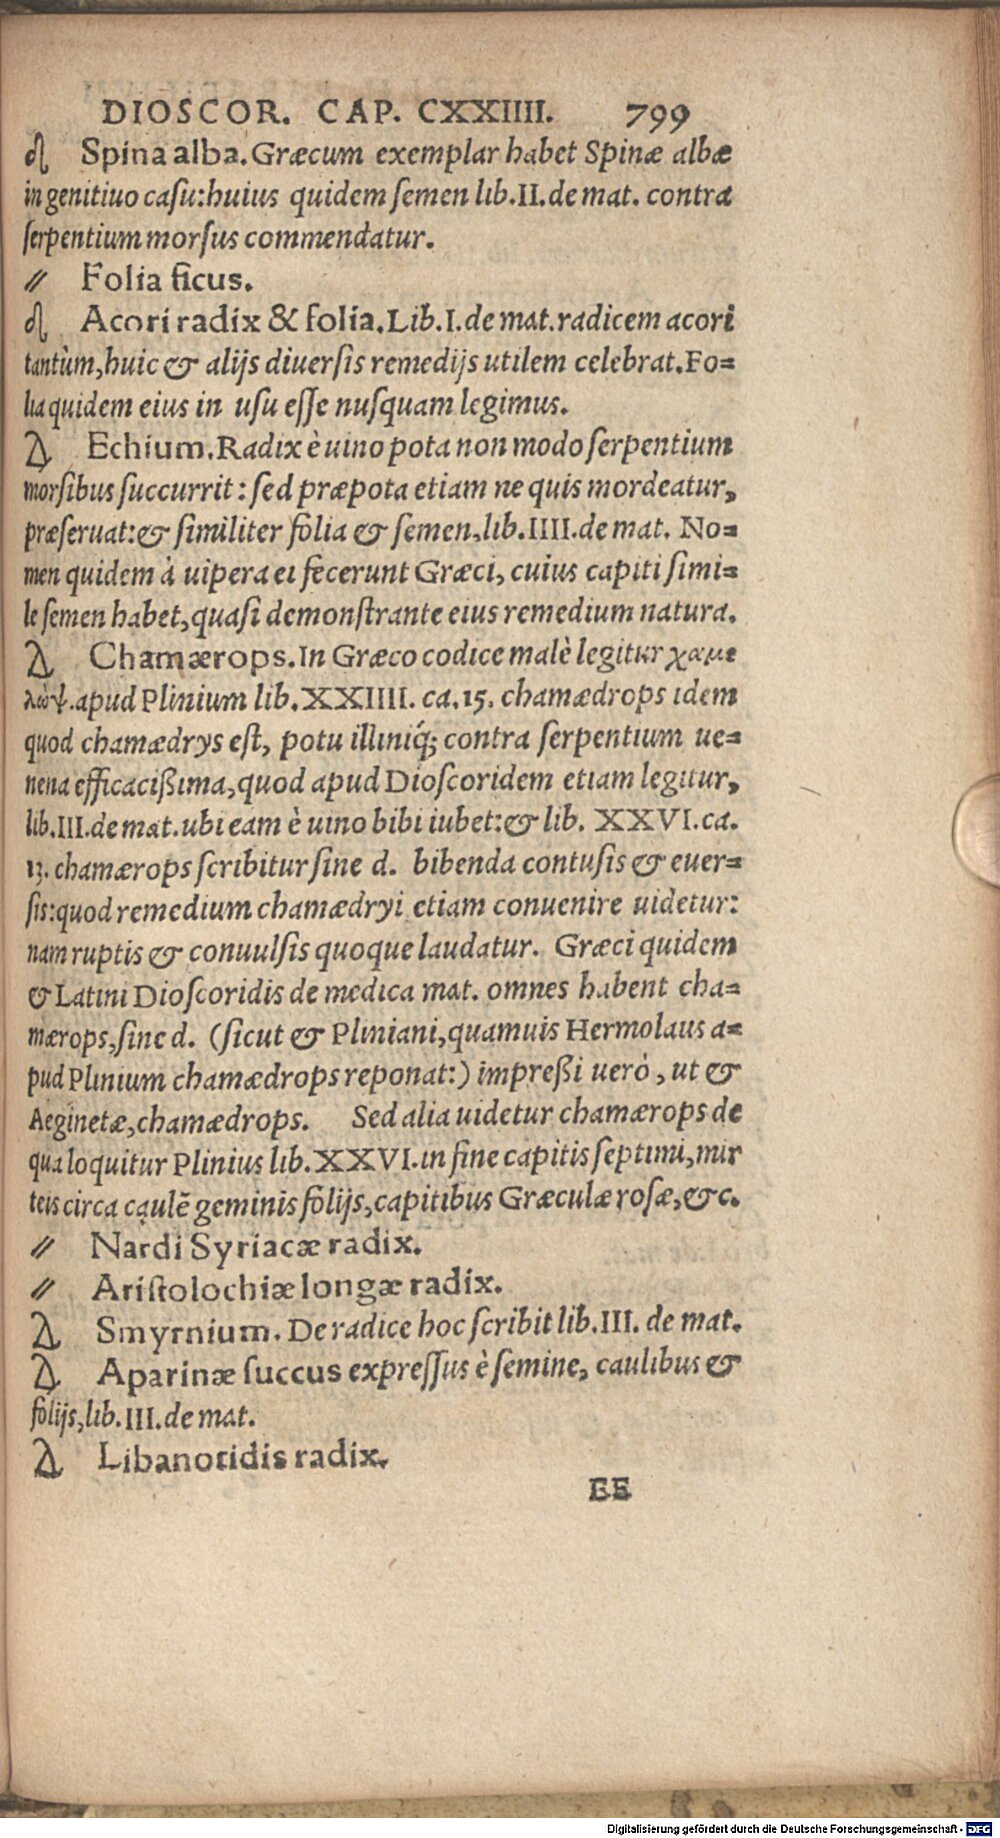 DIOSCOR. CAP. CXXIIII. 799
Spina alba. Græcum exemplar habet Spinæ albæ
in genitiuo casu: huius quidem semen lib. II. de mat. contra
serpentium morsus commendatur.
〃 Folia ficus.
Acori radix & folia. Lib. I. de mat. radicem acori
tantùm, huic & alijs diuersis remedijs utilem celebrat. Fo=
lia quidem eius in usu esse nusquam legimus.
Δ Echium. Radix è uino pota non modo serpentium
morsibus succurrit: sed præpota etiam ne quis mordeatur,
præseruat: & similiter folia & semen, lib. IIII. de mat. No=
men quidem à uipera ei fecerunt Græci, cuius capiti simi=
le semen habet, quasi demonstrante eius remedium natura.
Δ Chamærops. In Græco codice malè legitur χαμε
λώψ. apud Plinium lib. XXIIII. ca. 15. chamædrops idem
quod chamædrys est, potu illiniq́; contra serpentium ue=
nena efficacißima, quod apud Dioscoridem etiam legitur,
lib. III. de mat. ubi eam è uino bibi iubet: & lib. XXVI. ca.
13. chamærops scribitur sine d. bibenda contusis & euer=
sis: quod remedium chamædryi etiam conuenire uidetur:
nam ruptis & conuulsis quoque laudatur. Græci quidem
& Latini Dioscoridis de medica mat. omnes habent cha=
mærops, sine d. (sicut & Pliniani, quamuis Hermolaus a=
pud Plinium chamædrops reponat:) impreßi uerò, ut &
Aeginetæ, chamædrops. Sed alia uidetur chamærops de
qua loquitur Plinius lib. XXVI. in fine capitis septimi, mir
teis circa caulē geminis folijs, capitibus Græculæ rosæ, &c.
〃 Nardi Syriacæ radix.
〃 Aristolochiæ longæ radix.
Δ Smyrnium. De radice hoc scribit lib. III. de mat.
Δ Aparinæ succus expressus è semine, caulibus &
folijs, lib. III. de mat.
Δ Libanotidis radix.
EE
Digitalisierung gefördert durch die Deutsche Forschungsgemeinschaft - DFG